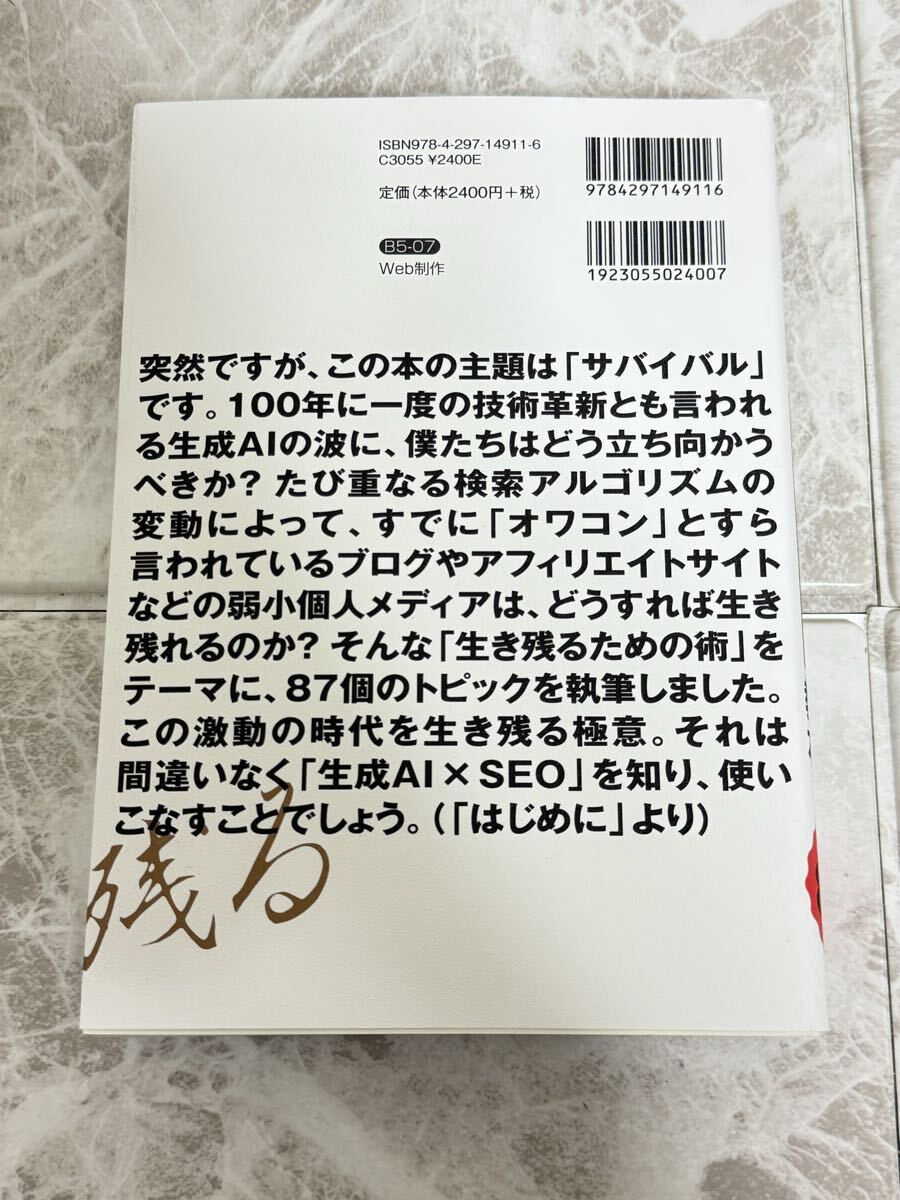 ISBN978-4-297-14911-6
C3055 ¥2400E
定価(本体2400円+税)
9784297149116
B5-07
Web制作
1923055024007
突然ですが、この本の主題は「サバイバル」
です。100年に一度の技術革新とも言われ
る生成AIの波に、僕たちはどう立ち向かう
べきか? たび重なる検索アルゴリズムの
変動によって、すでに「オワコン」とすら
言われているブログやアフィリエイトサイト
などの弱小個人メディアは、どうすれば生き
残れるのか? そんな「生き残るための術」を
テーマに、87個のトピックを執筆しました。
この激動の時代を生き残る極意。それは
間違いなく「生成AI×SEO」を知り、使い
こなすことでしょう。(「はじめに」より)
残る